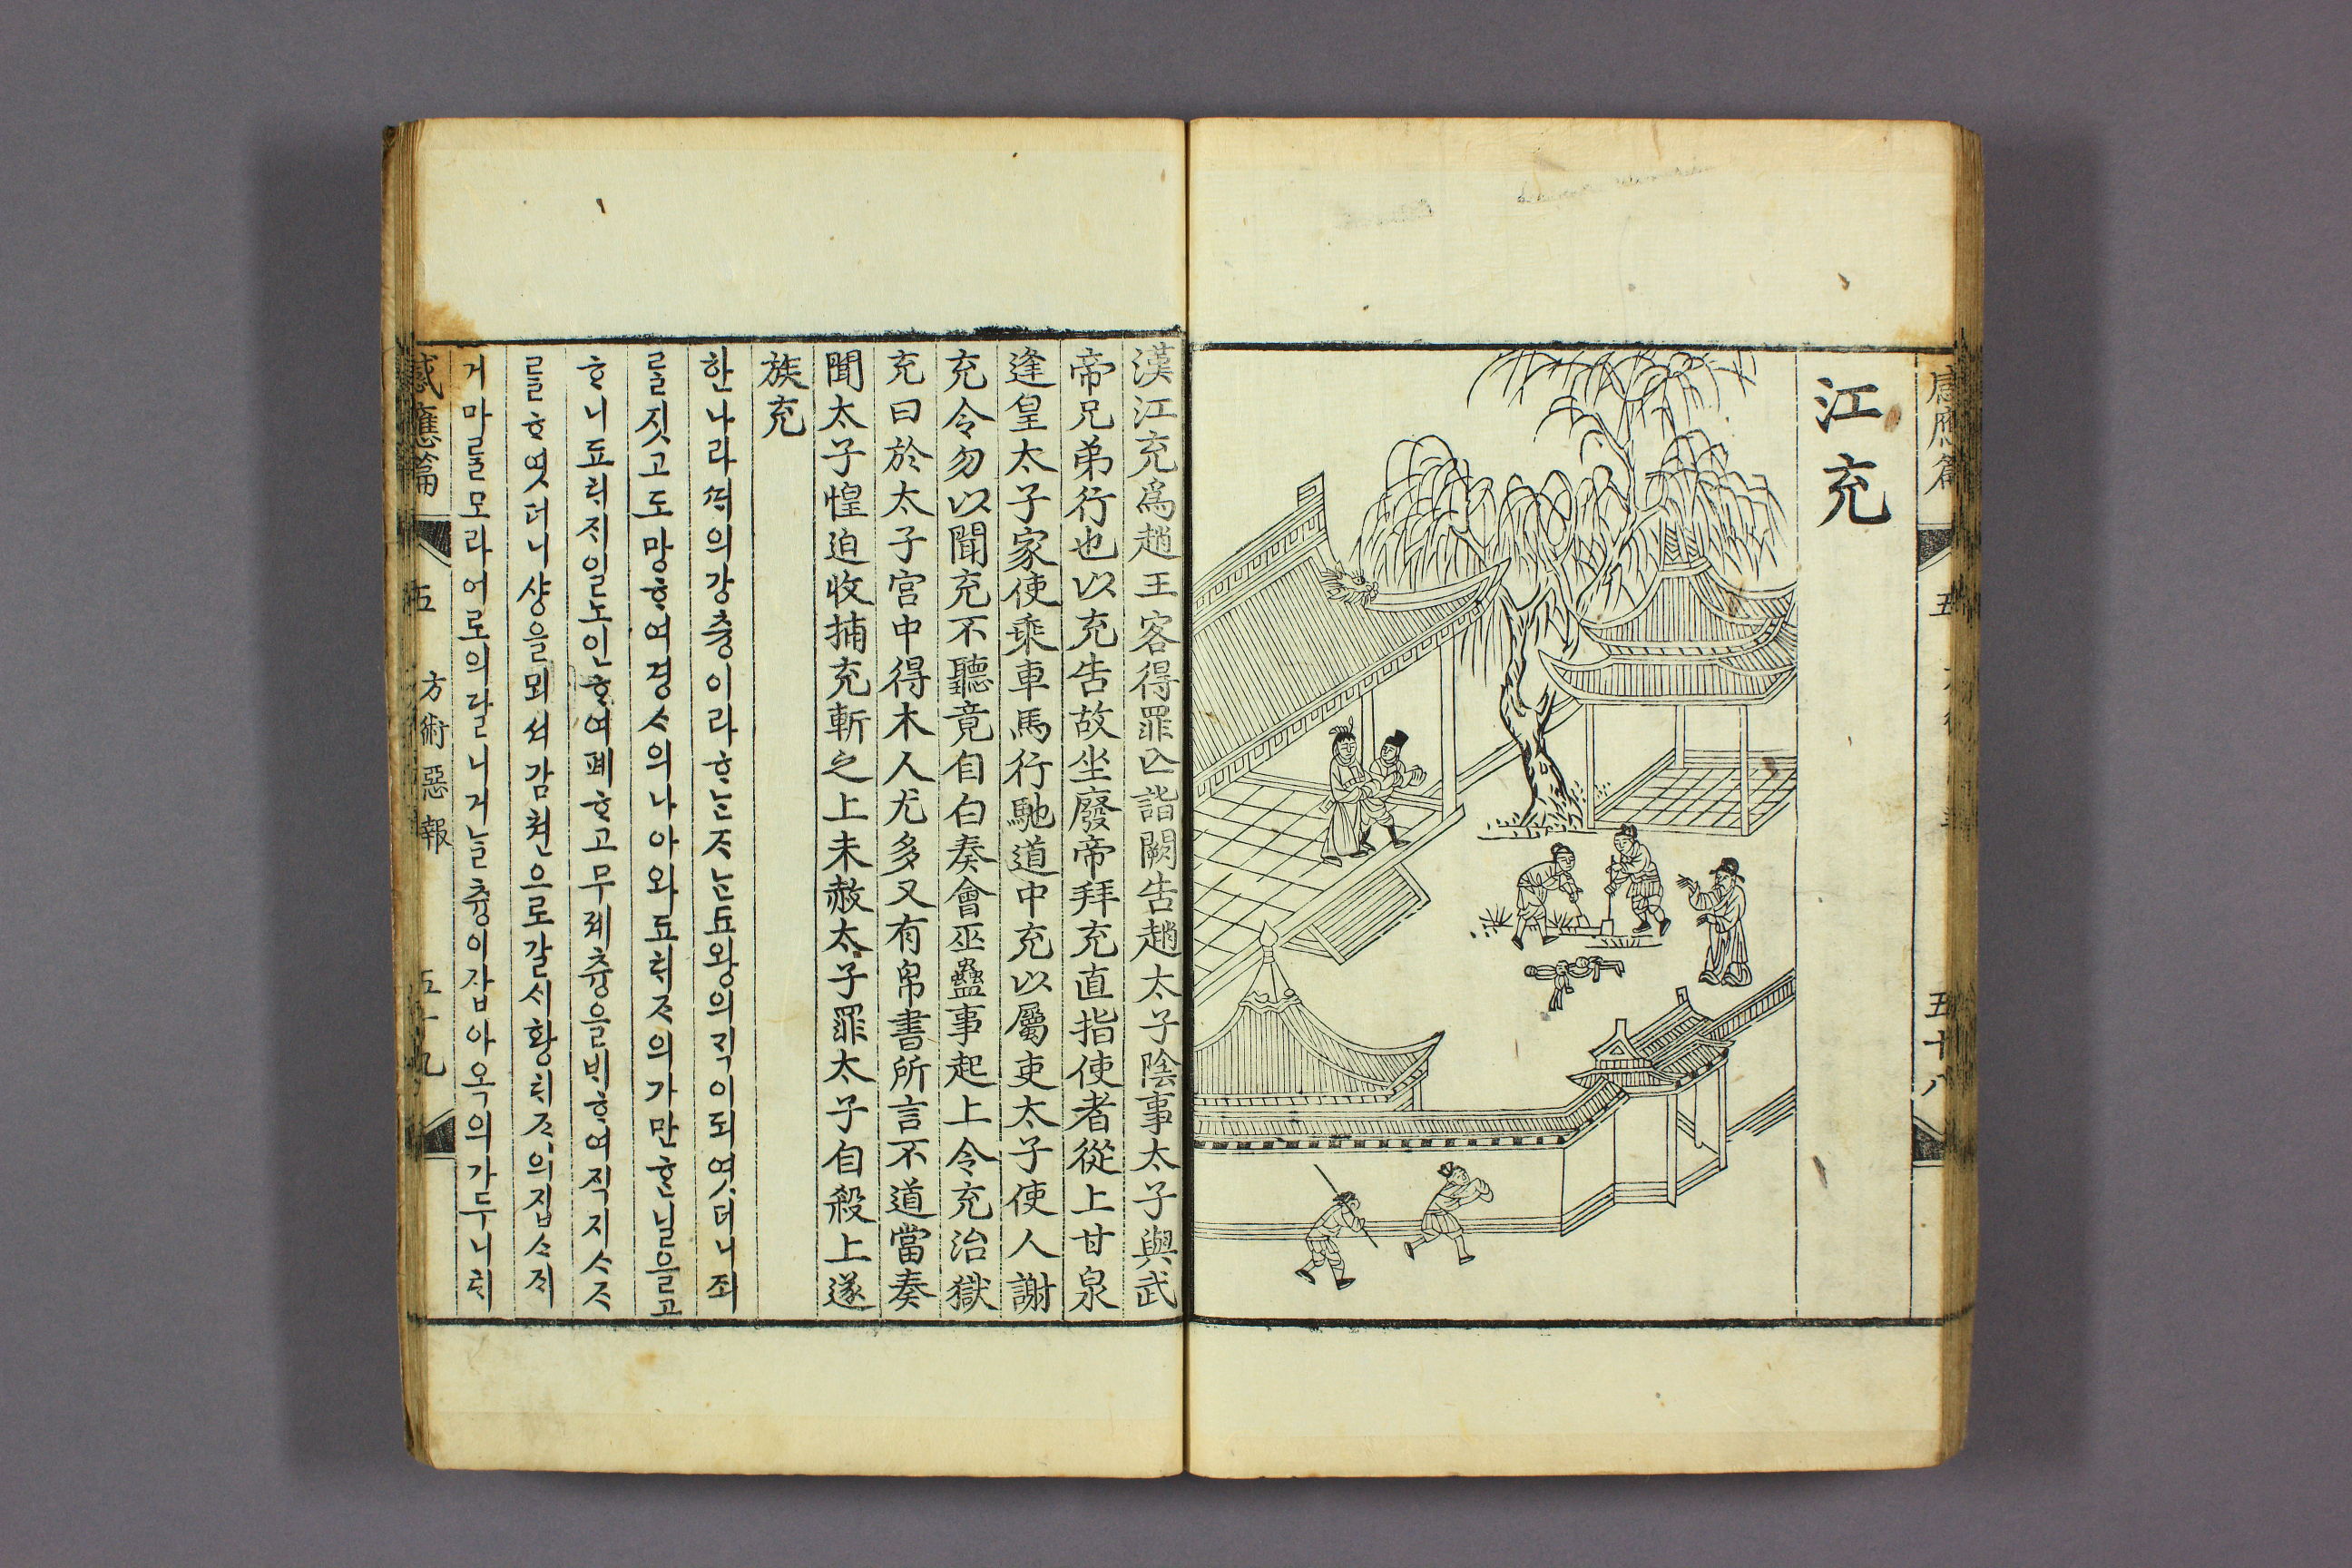 感應篇
五
五十八
江充
漢江充爲趙王客得罪亾詣闕告趙太子陰事太子與武
帝兄弟行也以充告故坐廢帝拜充直指使者從上甘泉
逢皇太子家使乘車馬行馳道中充以屬吏太子使人謝
充令勿以聞充不聽竟自白奏會巫蠱事起上令充治獄
充曰於太子宮中得木人尤多又有帛書所言不道當奏
聞太子惶迫收捕充斬之上未赦太子罪太子自殺上遂
族充
한나라ᄯᅢ의강츙이라ᄒᆞᄂᆞᆫᄌᆞᄂᆞᆫ됴왕의ᄀᆡᆨ이되엿더니죄
를짓고도망ᄒᆞ여경ᄉᆞ의나아와됴ᄐᆡᄌᆞ의가만ᄒᆞᆫ닐을고
ᄒᆞ니됴ᄐᆡᄌᆡ일노인ᄒᆞ여폐ᄒᆞ고무졔츙을ᄇᆡᄒᆞ여직지ᄉᆞᄌᆞ
를ᄒᆞ엿더니샹을뫼셔감쳔으로갈시황ᄐᆡᄌᆞ의집ᄉᆞᄌᆡ
거마를모라어로의달니거늘츙이잡아옥의가두니ᄐᆡ
感應篇
五
方術惡報
五十九